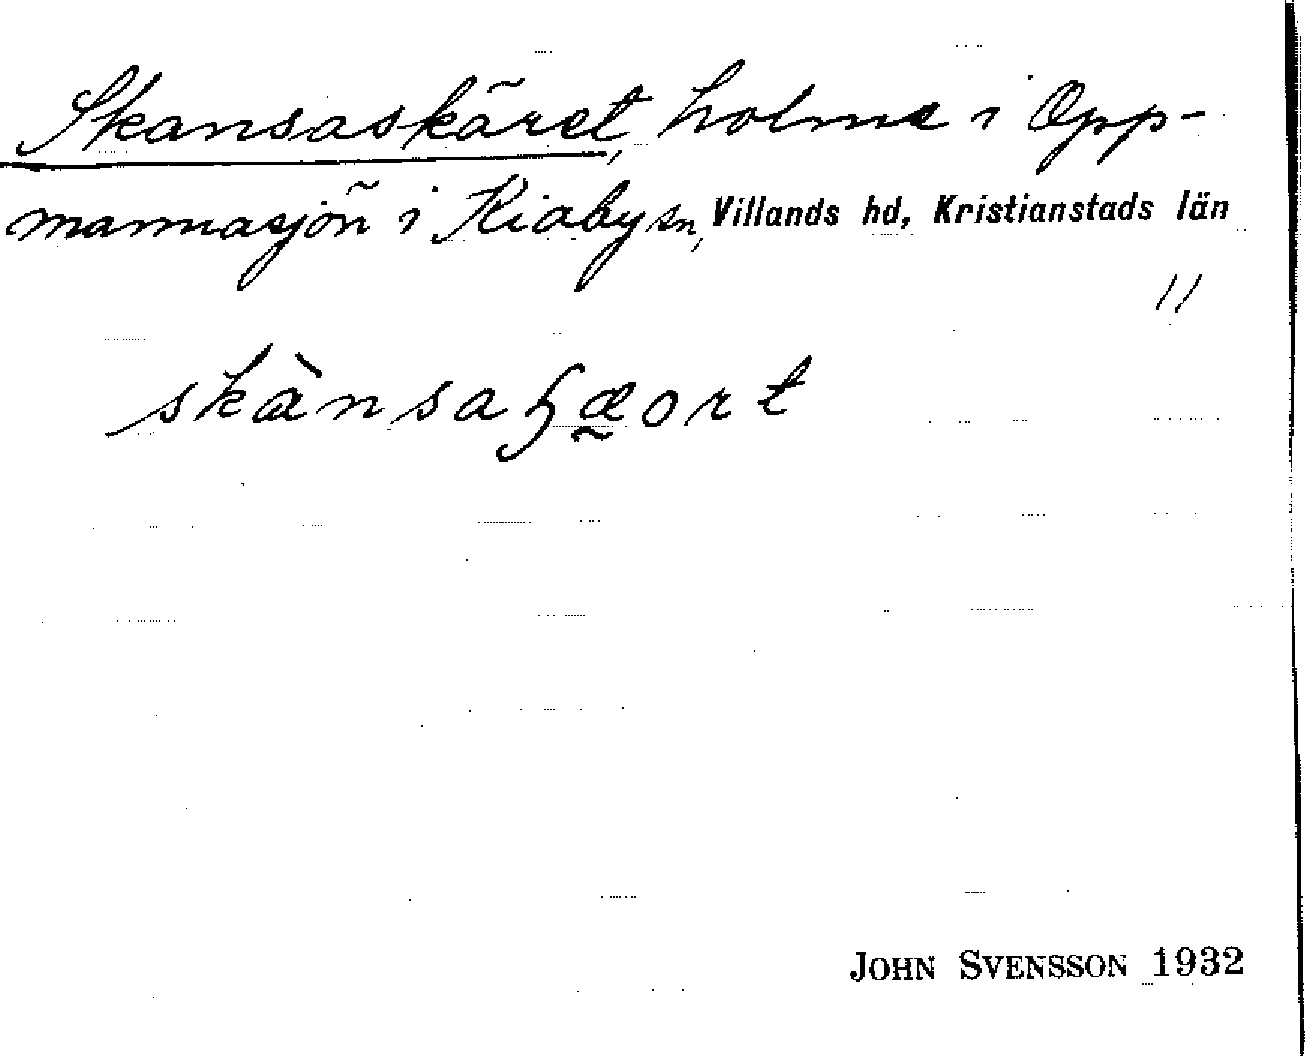 Skansaskäret, holme i Opp-
mannasjön i Kiaby sn, Villands hd, Kristianstads län
//
skànsaɧæort
JOHN SVENSSON 1932